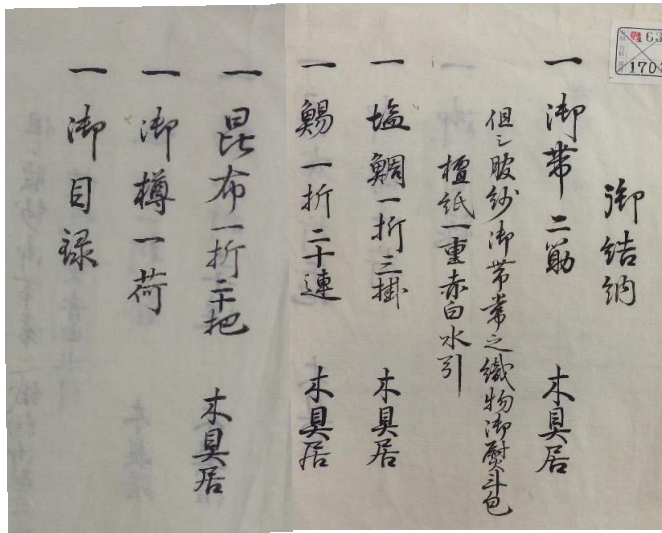 御結納
一 御帯 二筋 木具居
但シ 服紗御帯常之織物御熨斗包
檀紙一重赤白水引
一 塩鯛一折三掛 木具居
一 鯣一折二十連 木具居
一 昆布一折二十把 木具居
一 御樽一荷
一 御目録
163
1703